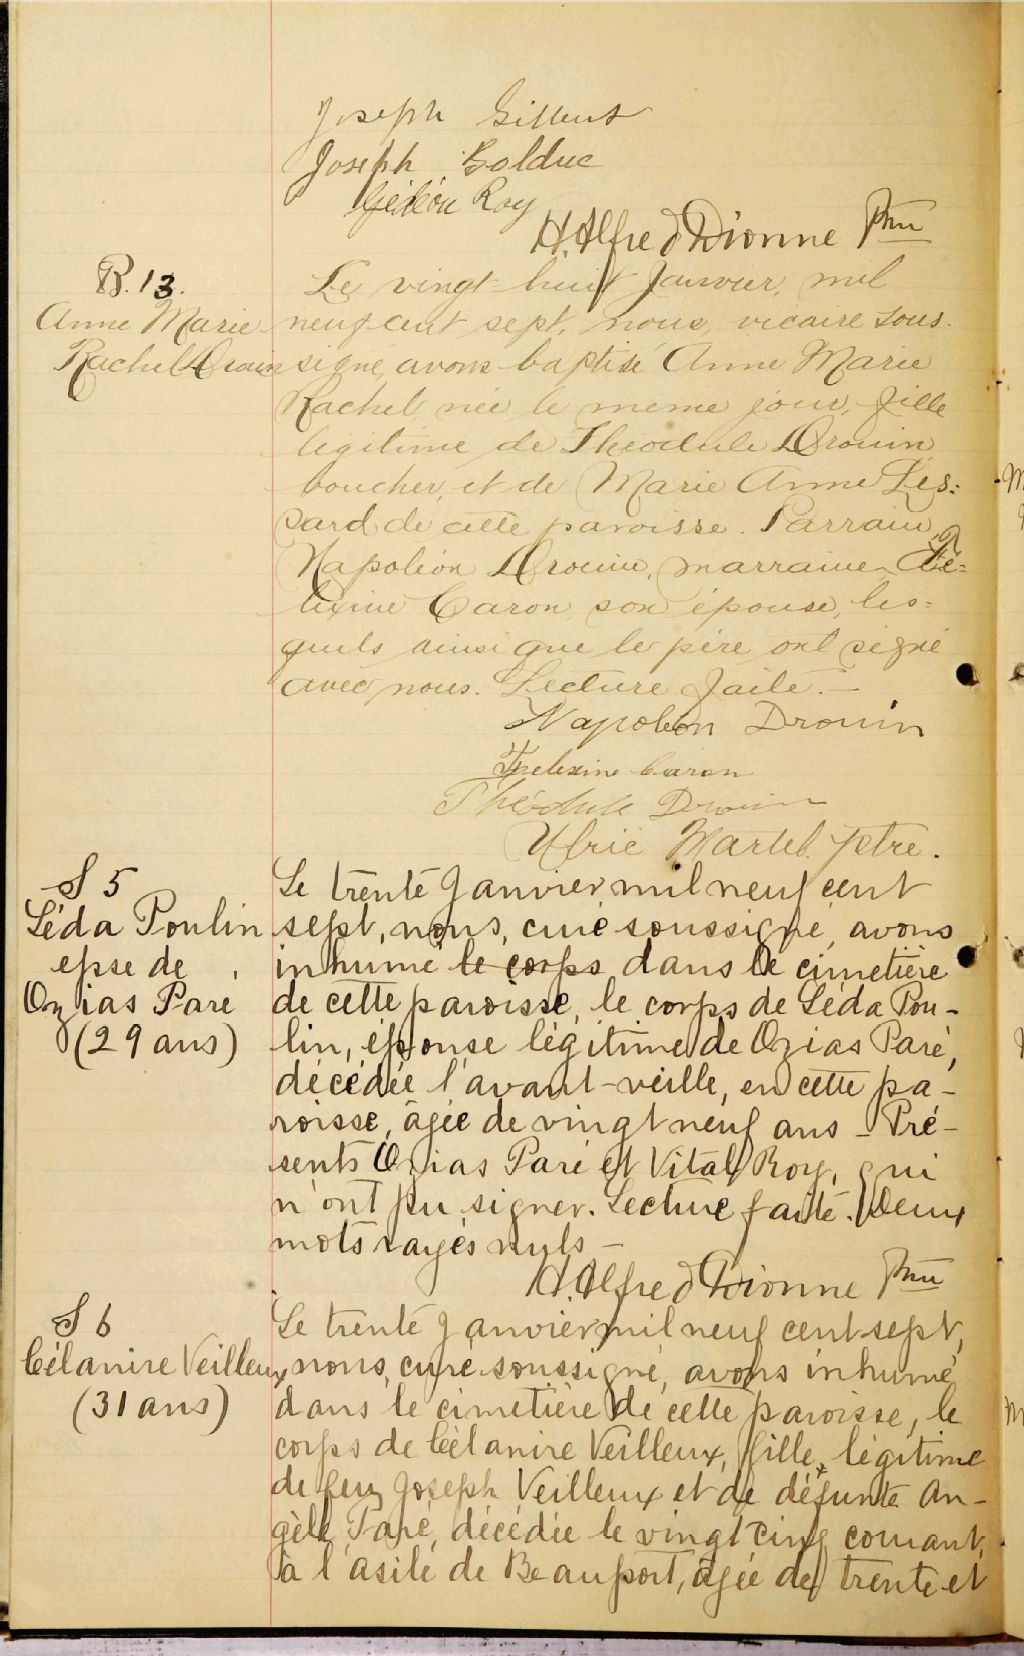 Joseph Gilbert
Joseph Bolduc
Gédéon Roy
H. Alfred Dionne Ptre
B. 13.
Anne Marie
Rachel Drouin
Le vingt-huit Janvier, mil
neuf-cent sept, nous, vicaire sous-
signé, avons baptisé Anne Marie
Rachel, née le même jour, fille
légitime de Théodule Drouin
boucher, et de Marie Anne Les=
sard de cette paroisse. Parrain,
Napoléon Drouin, marraine,
lexine Caron son épouse, les=
quels ainsi que le père ont signé
avec nous. Lecture faite. —
Napoléon Drouin
Caron
Théodule Drouin
Ulric Martel ptre.
S 5
Léda Poulin
epse de
Ozias Paré
(29 ans)
Le trente Janvier mil neuf cent
sept, nous, curé soussigné, avons
inhumé le corps dans le cimetière
de cette paroisse, le corps de Léda Pou-
lin, épouse légitime de Ozias Paré,
décédée l'avant-veille, en cette pa-
roisse, âgée de vingt neuf ans – Pré-
sents Ozias Paré et Vital Roy, qui
n'ont pu signer. Lecture faite. Deux
mots rayés nuls –
H. Alfred Dionne Ptre
S 6
Célanire Veilleux
(31 ans)
Le trente Janvier mil neuf cent sept,
nous, curé soussigné, avons inhumé
dans le cimetière de cette paroisse, le
corps de Célanire Veilleux, fille légitime
de feu Joseph Veilleux et de défunte An-
gèle Paré, décédée le vingt cinq courant,
à l'asile de Beauport, âgée de trente et